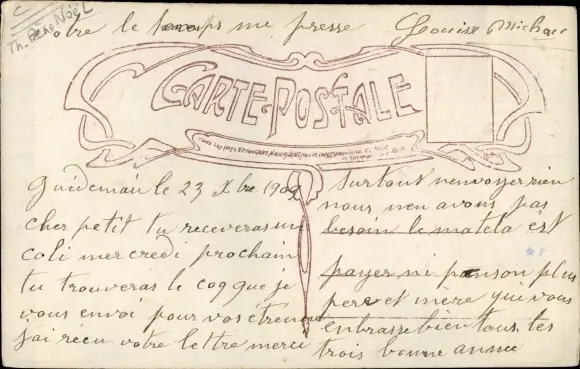 Th. Père Noël
otre le temps me presse Louise Michau
CARTE POSTALE
Guédemau le 23 Xbre 1909
cher petit tu receveras un
coli mercredi prochain
tu trouveras le coq que je
vous envoi pour vos etrenne
jai recu votre lettre merci
surtout nenvosser rien
nous nen avons pas
besoin le matela est
payer ni penson plus
pere et mere qui vous
enbrasse bien tous les
trois bonne année